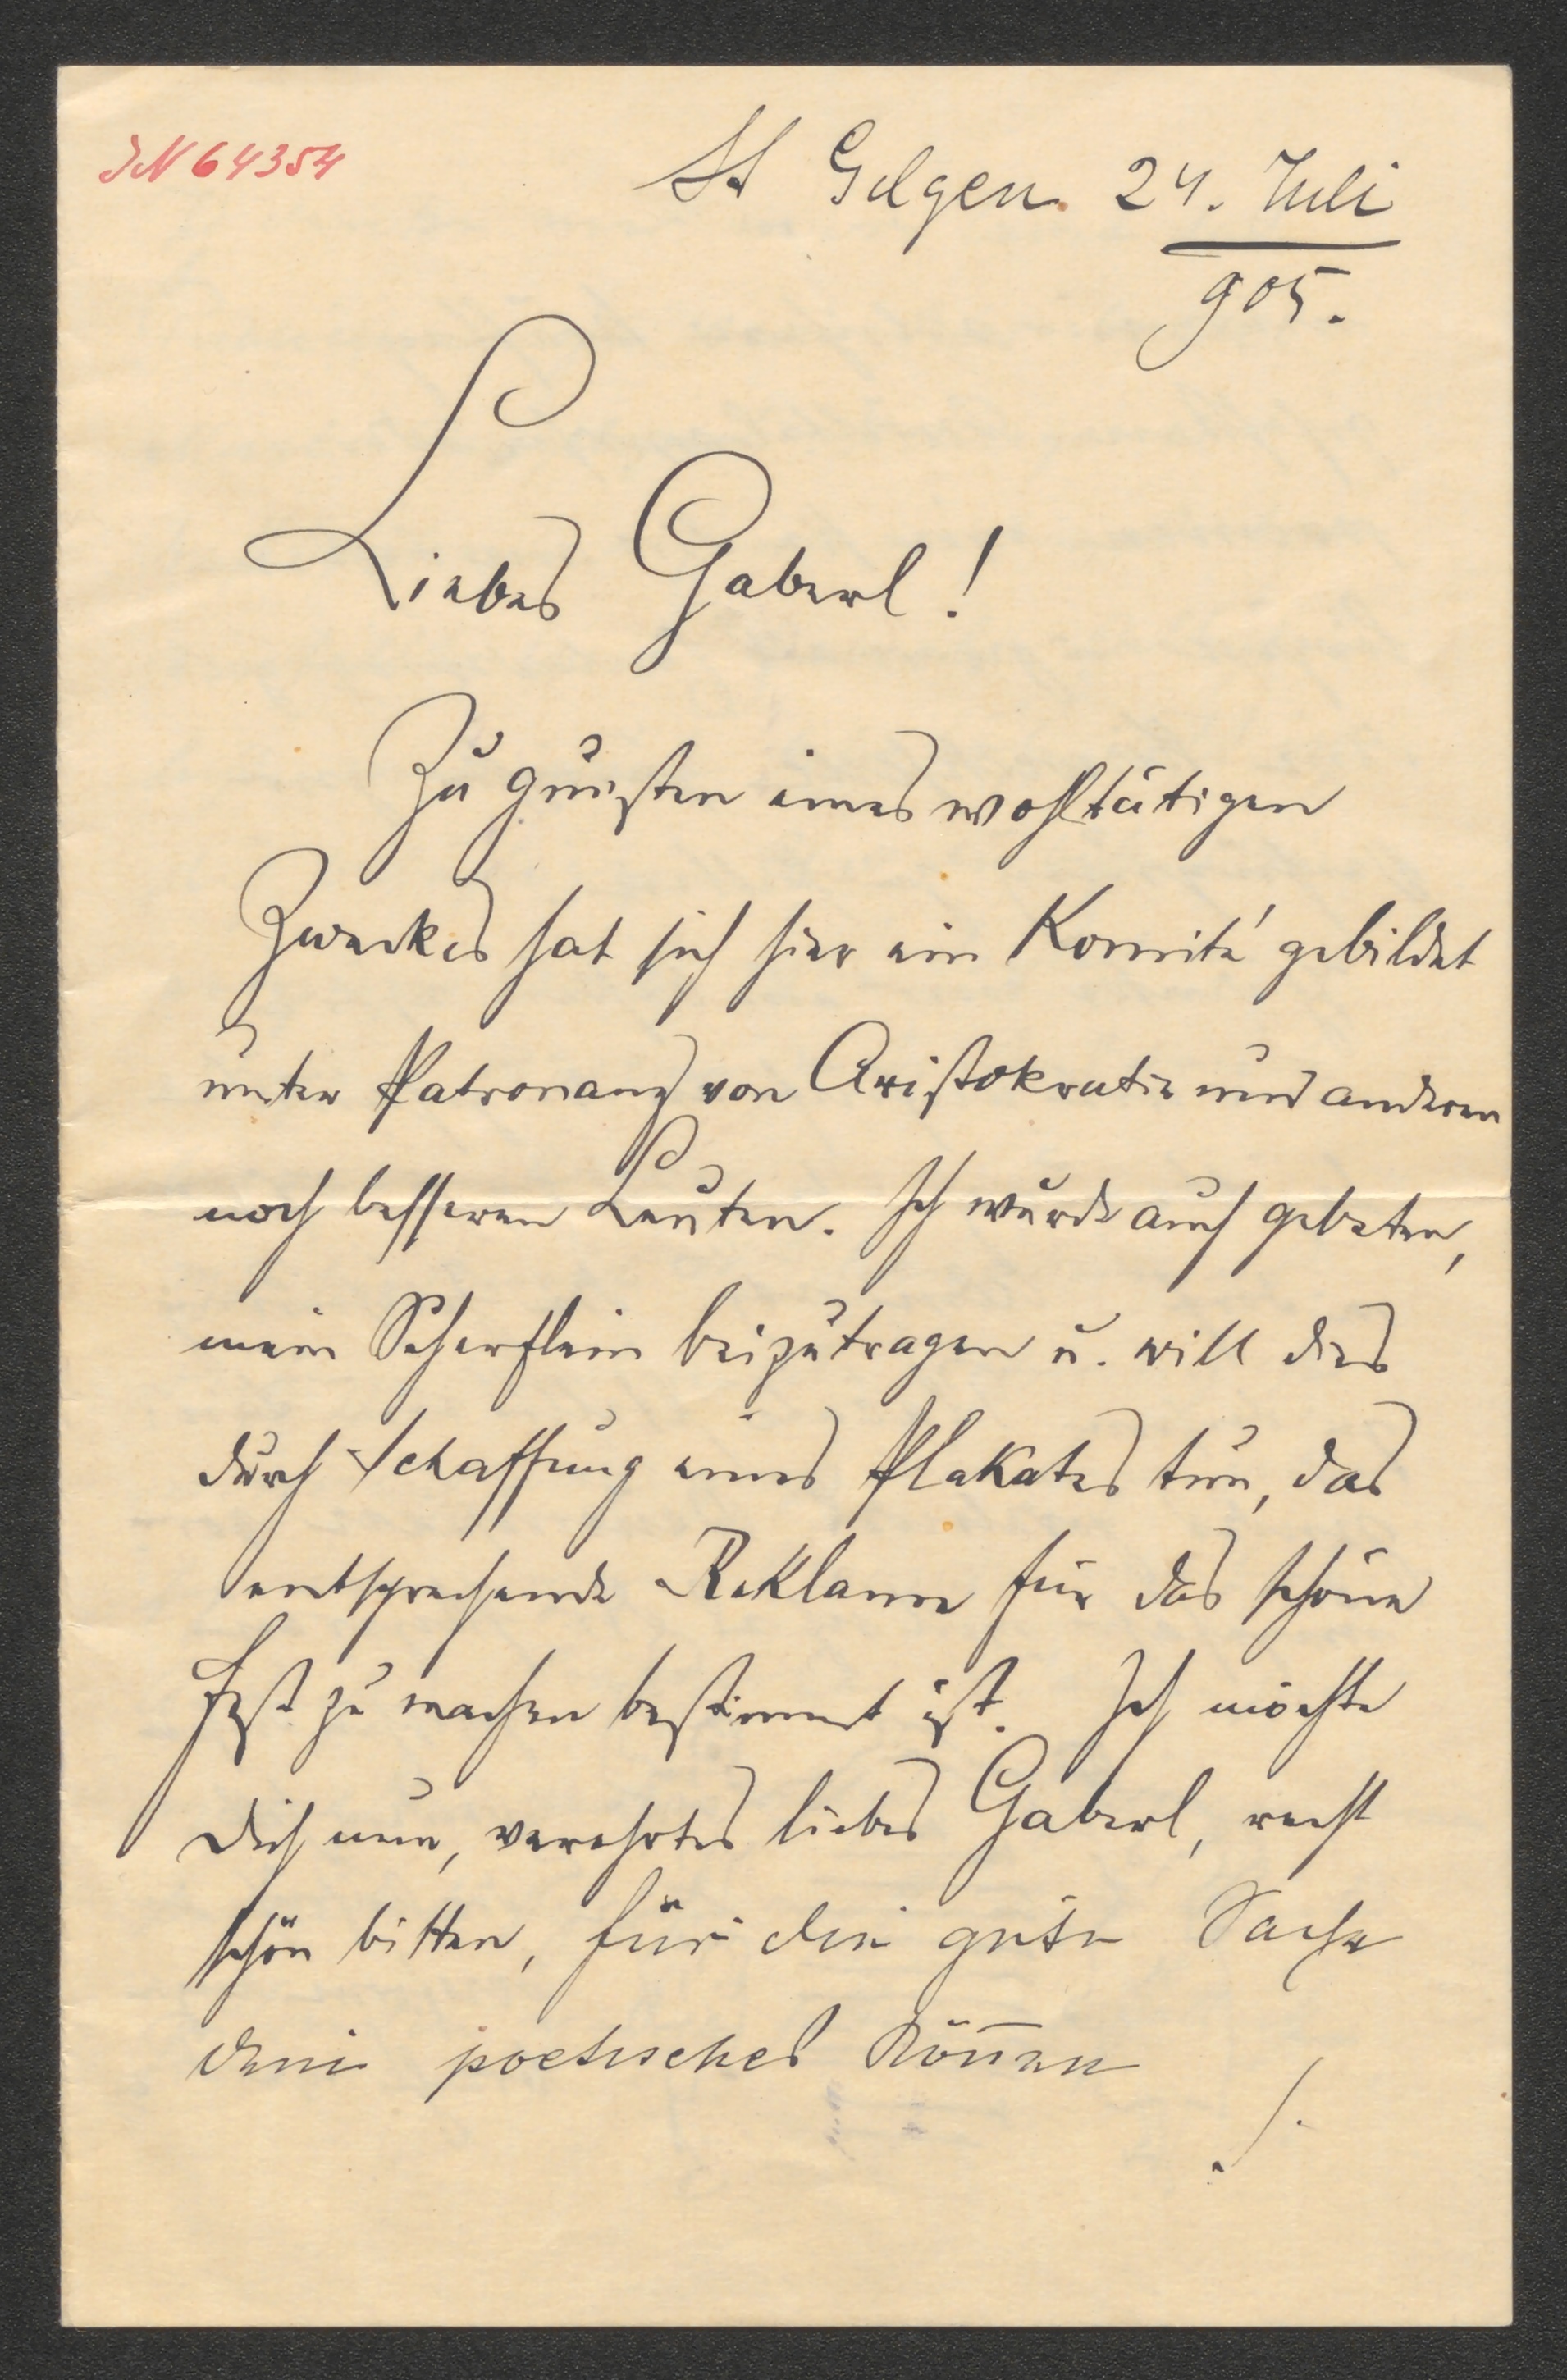 IN 64354
St Gilgen. 24. Juli
905.
Liebes Gaberl!
Zu gunsten eines wohltätigen
Zweckes hat sich hier ein Komité gebildet
unter Patronanz von Aristokratie und anderen
noch besseren Leuten. Ich wurde auch gebeten,
mein Scherflein beizutragen u. will dies
durch Schaffung eines Plakates tun, das
entsprechende Reklame für das schöne
Fest zu machen bestimmt ist. Ich möchte
Dich nun, verehrtes liebes Gaberl, recht
schön bitten, für die gute Sache
dein poetisches Können
./.